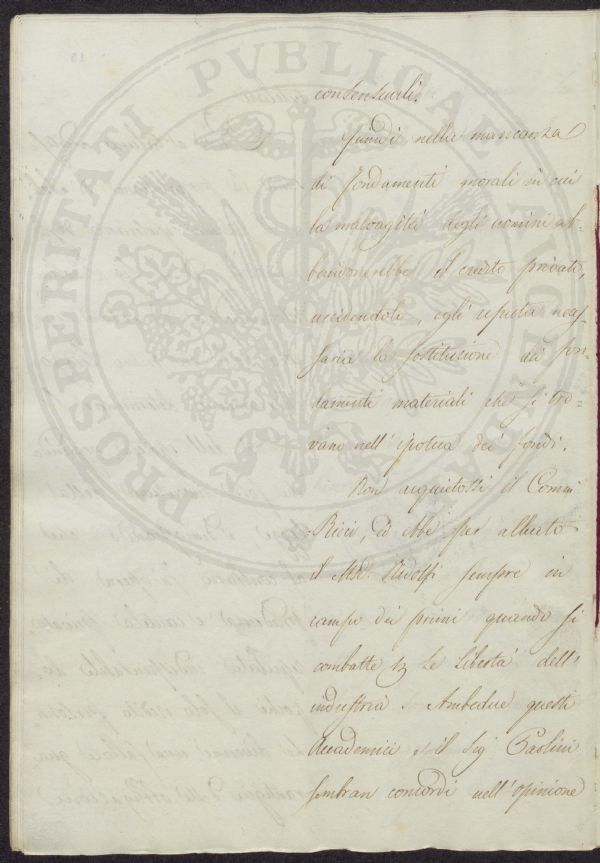 PROSPERITATI PVBLICAE AVGENDAE
consensuali.
Quindi nella mancanza
di fondamenti morali in cui
la malvagità degli uomini ab-
bandonerebbe il credito privato,
uccidendolo, egli reputa neces-
saria la sostituzione dei fon-
damenti materiali che si tro-
vano nell' ipoteca dei fondi.
Non acquietossi il Comm:
Ricci, ed ebbe per alleato
il Mse. Ridolfi sempre in
campo dei primi quando si
combatte p le libertà dell'
industria. Ambedue questi
Accademici e il Sig Paolini
sembran concordi nell' opinione